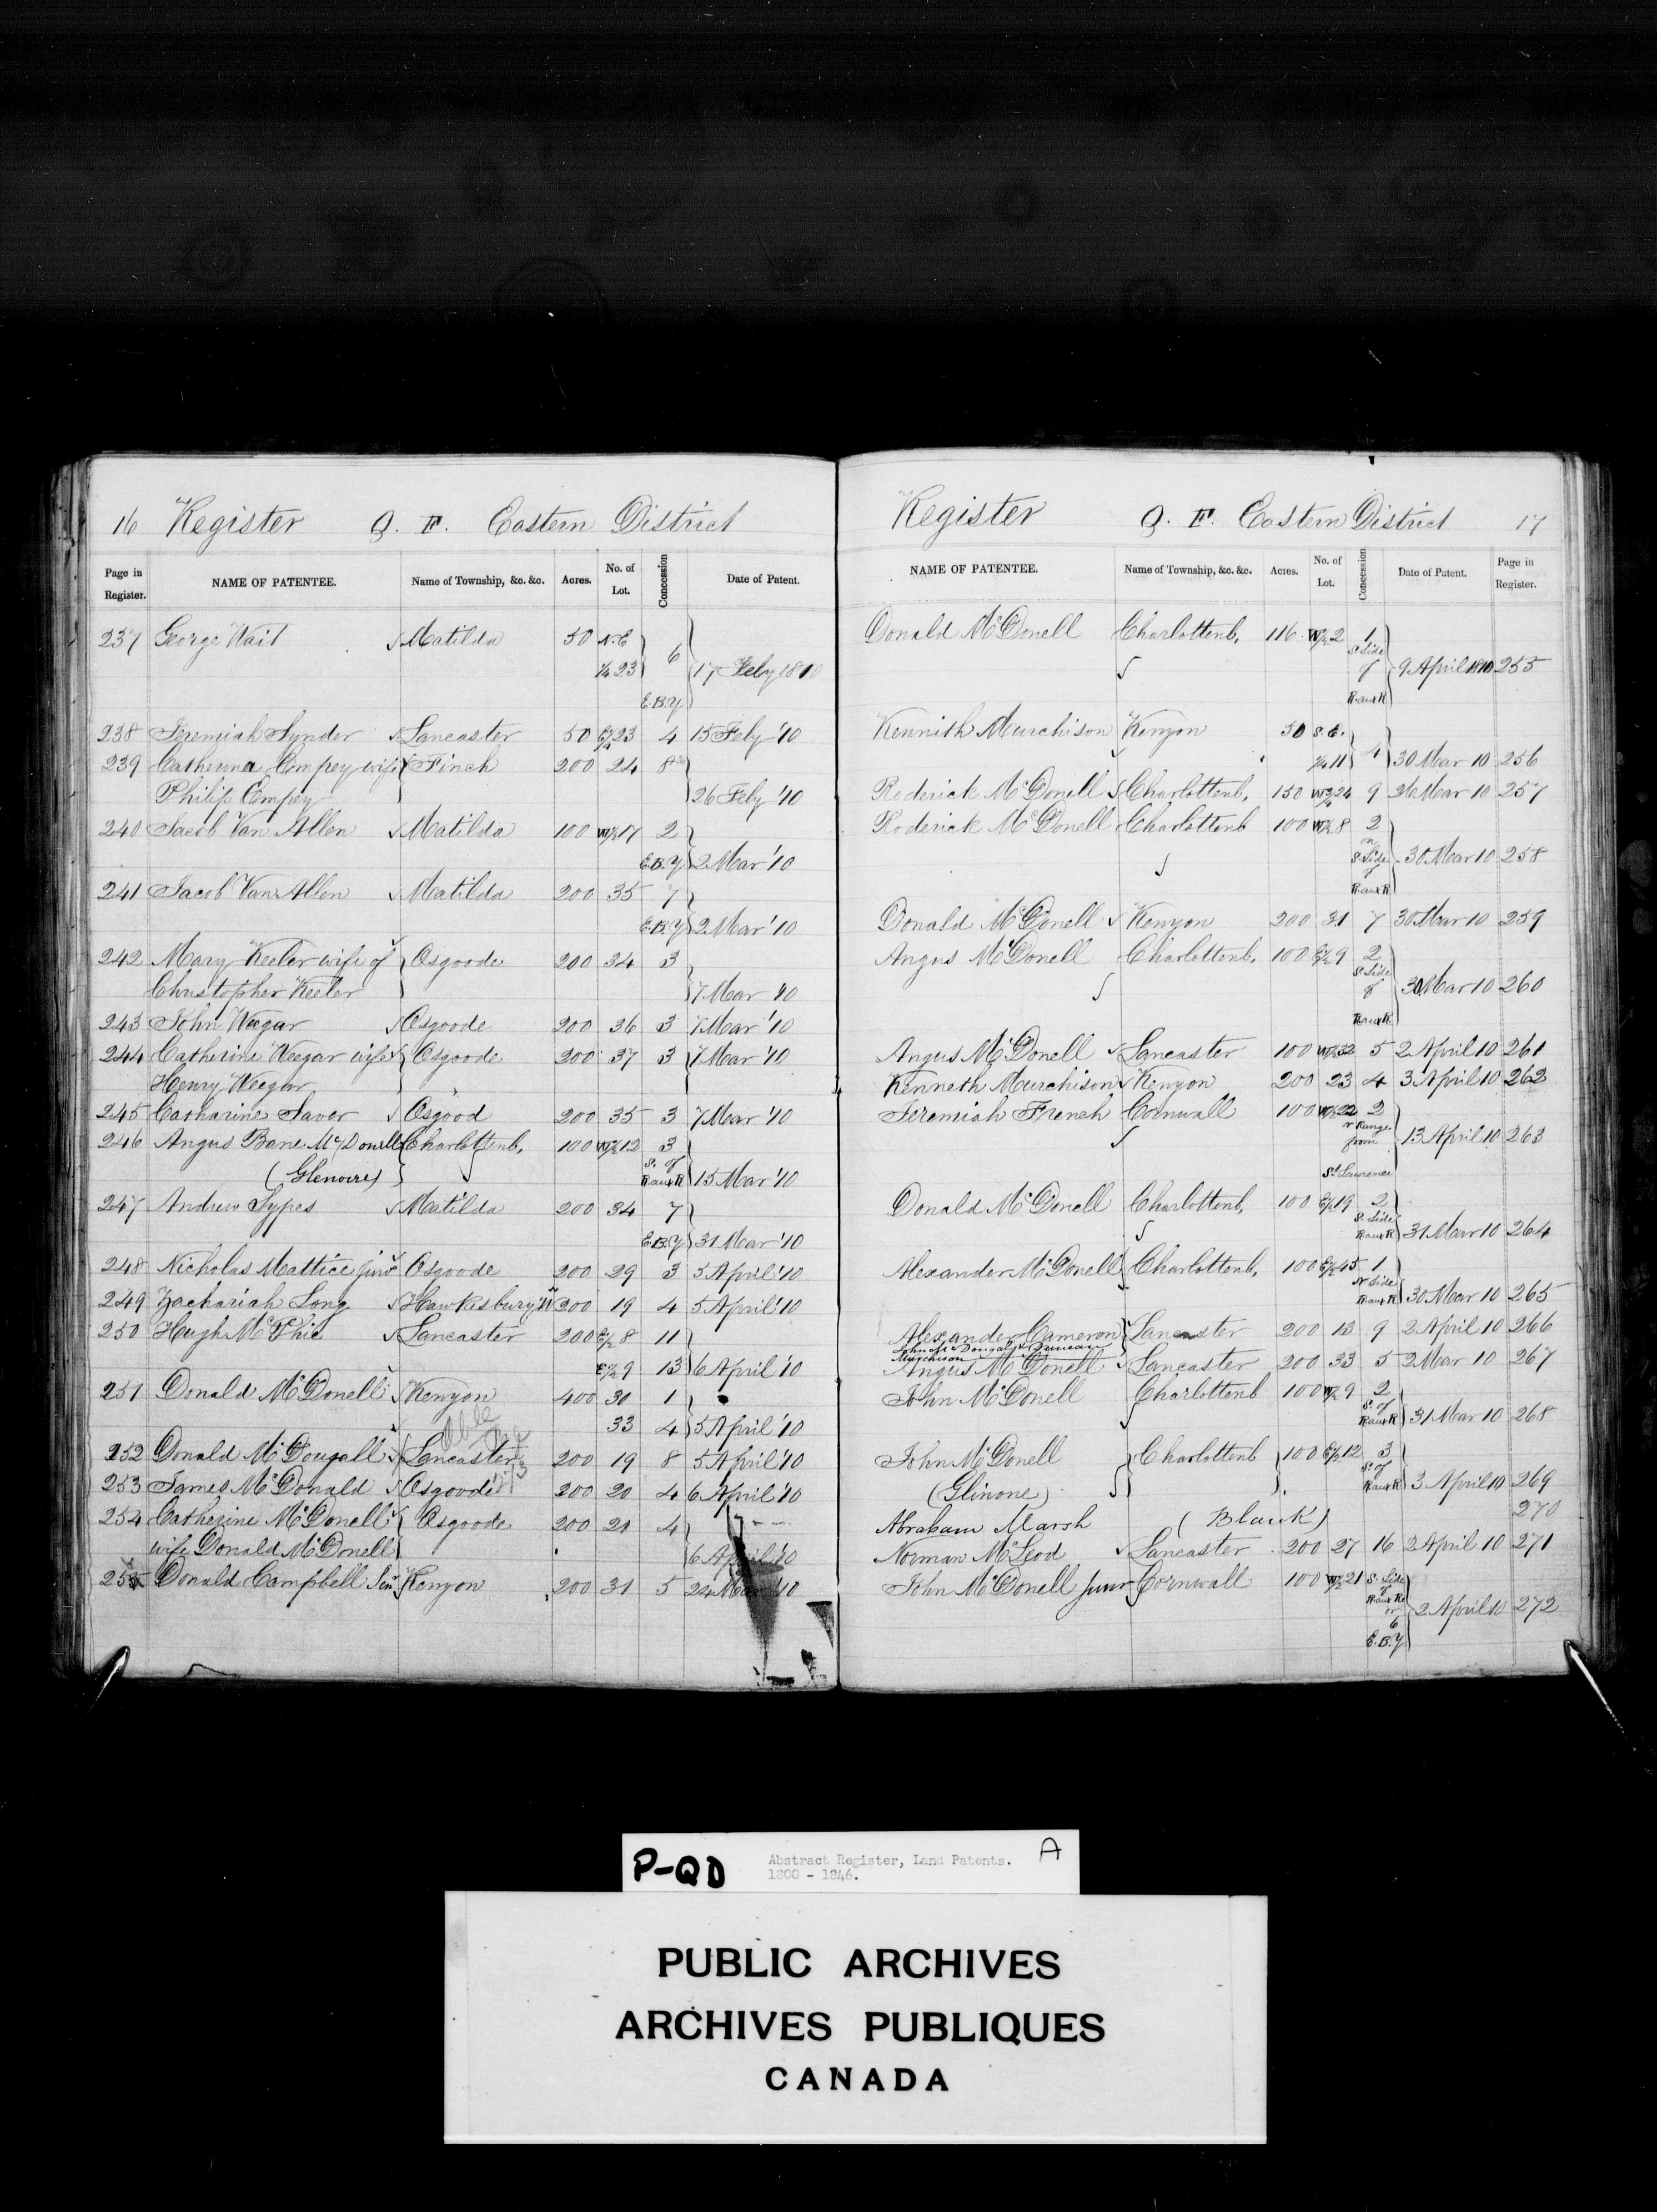 16 Register Q. F. Eastern District
Page in Register. NAME OF PATENTEE. Name of Township, &c. &c. Acres. No. of Lot. Concession Date of Patent.
237 George Wait Matilda 50 N.E
1/4 23 6 17 Feby 1810
E.B.Y
238 Jeremiah Synder Lancaster 50 E 1/4 23 4 15 Feby '10
239 Catherina Empey wife Finch 200 24 8
Philip Empey 26 Feby '10
240 Jacob Van Allen Matilda 100 W 1/2 17 2
E.B.Y 2 Mar '10
241 Jacob Van Allen Matilda 200 35 7
E.B.Y 2 Mar '10
242 Mary Keeler wife of Osgoode 200 34 3
Christopher Keeler 7 Mar '10
243 John Weegar Osgoode 200 36 3 7 Mar '10
244 Catherine Weegar wife Osgoode 200 37 3 7 Mar '10
Henry Weegar
245 Catharine Saver Osgood 200 35 3 7 Mar '10
246 Angus Bane McDonell Charlottenb. 100 W 1/2 12 3
(Glenoire) S. of Raux R 15 Mar '10
247 Andrew Sypes Matilda 200 34 7
E.B.Y 31 Mar '10
248 Nicholas Mattice junr Osgoode 200 29 3 5 April '10
249 Zachariah Long Hawkesbury W 200 19 4 5 April '10
250 Hugh McPhie Lancaster 200 E 1/2 8 11
E 1/2 9 13 6 April '10
251 Donald McDonell Kenyon 400 30 1
33 4 5 April '10
252 Donald McDougall Lancaster 200 19 8 5 April '10
253 James McDonald Osgoode 200 20 4 6 April '10
254 Catherine McDonell Osgoode 200 21 4
wife Donald McDonell 6 April '10
255 Donald Campbell Senr Kenyon 200 31 5 24 Mar '10
Register Q. F. Eastern District 17
NAME OF PATENTEE. Name of Township, &c. &c. Acres. No. of Lot. Concession Date of Patent. Page in Register.
Donald McDonell Charlottenb. 116 W 1/2 2 1
S. Side
of 9 April 1810 255
Raux R
Kennith Murchison Kenyon 50 S.E.
1/4 11 4 30 Mar 10 256
Roderick McDonell Charlottenb. 150 W 3/4 24 9 26 Mar 10 257
Roderick McDonell Charlottenb 100 W 1/2 8 2
on
S. Side of 30 Mar 10 258
Raux R
Donald McDonell Kenyon 200 31 7 30 Mar 10 259
Angus McDonell Charlottenb. 100 E 1/2 9 2
S. Side
of 30 Mar 10 260
Raux R
Angus McDonell Lancaster 100 W 1/2 32 5 2 April 10 261
Kenneth Murchison Kenyon 200 23 4 3 April 10 262
Jeremiah French Cornwall 100 W 1/2 22 2
r Range
from 13 April 10 263
St Lawrence
Donald McDonell Charlottenb. 100 E 1/2 19 2
S. Side
Raux R 31 Mar 10 264
Alexander McDonell Charlottenb. 100 E 1/2 45 1
N Side
Raux R 30 Mar 10 265
Alexander Cameron Lancaster 200 13 9 2 April 10 266
John McDougald & Duncan
Murchison
Angus McDonell Lancaster 200 33 5 2 Mar 10 267
John McDonell Charlottenb 100 W 1/2 9 2
S. of
Raux R 31 Mar 10 268
John McDonell Charlottenb 100 E 1/2 12 3
S. of
(Glinone) Raux R 3 April 10 269
Abraham Marsh (Blank) 270
Norman McLeod Lancaster 200 27 16 2 April 10 271
John McDonell Junr Cornwall 100 W 1/2 21 S. Side
of
Raux R
or 2 April 10 272
6
E.B.Y
P-QD Abstract Register, Land Patents. A
1800 - 1846.
PUBLIC ARCHIVES
ARCHIVES PUBLIQUES
CANADA